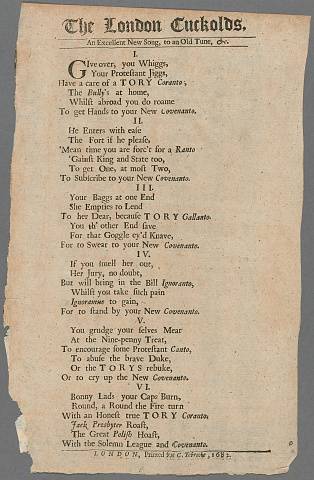 The London Cuckolds.
An Excellent New Song, to an Old Tune, &c.
I.
GIve over, you Whiggs,
Your Protestant Jiggs,
Have a care of a TORY Coranto;
The Bully's at home,
Whilst abroad you do roame
To get Hands to your New Covenanto.
II.
He Enters with ease
The Fort if he please,
'Mean time you are forc't for a Ranto
'Gainst King and State too,
To get One, at most Two,
To Subscribe to your New Covenanto.
III.
Your Baggs at one End
She Empties to Lend
To her Dear, because TORY Gallanto.
You th' other End save
For that Goggle ey'd Knave,
For to Swear to your New Covenanto.
IV.
If you smell her out,
Her Jury, no doubt,
But will bring in the Bill Ignoranto,
Whilst you take such pain
Ignoramus to gain,
For to stand by your New Covenanto.
V.
You grudge your selves Meat
At the Nine-penny Treat,
To encourage some Protestant Canto,
To abuse the brave Duke,
Or the TORYS rebuke,
Or to cry up the New Covenanto.
VI.
Bonny Lads your Caps Burn,
Round, a Round the Fire turn
With an Honest true TORY Coranto;
Jack Presbyter Roast,
The Great Polish Hoast,
With the Solemn League and Covenanto.
LONDON, Printed for C. 1682.